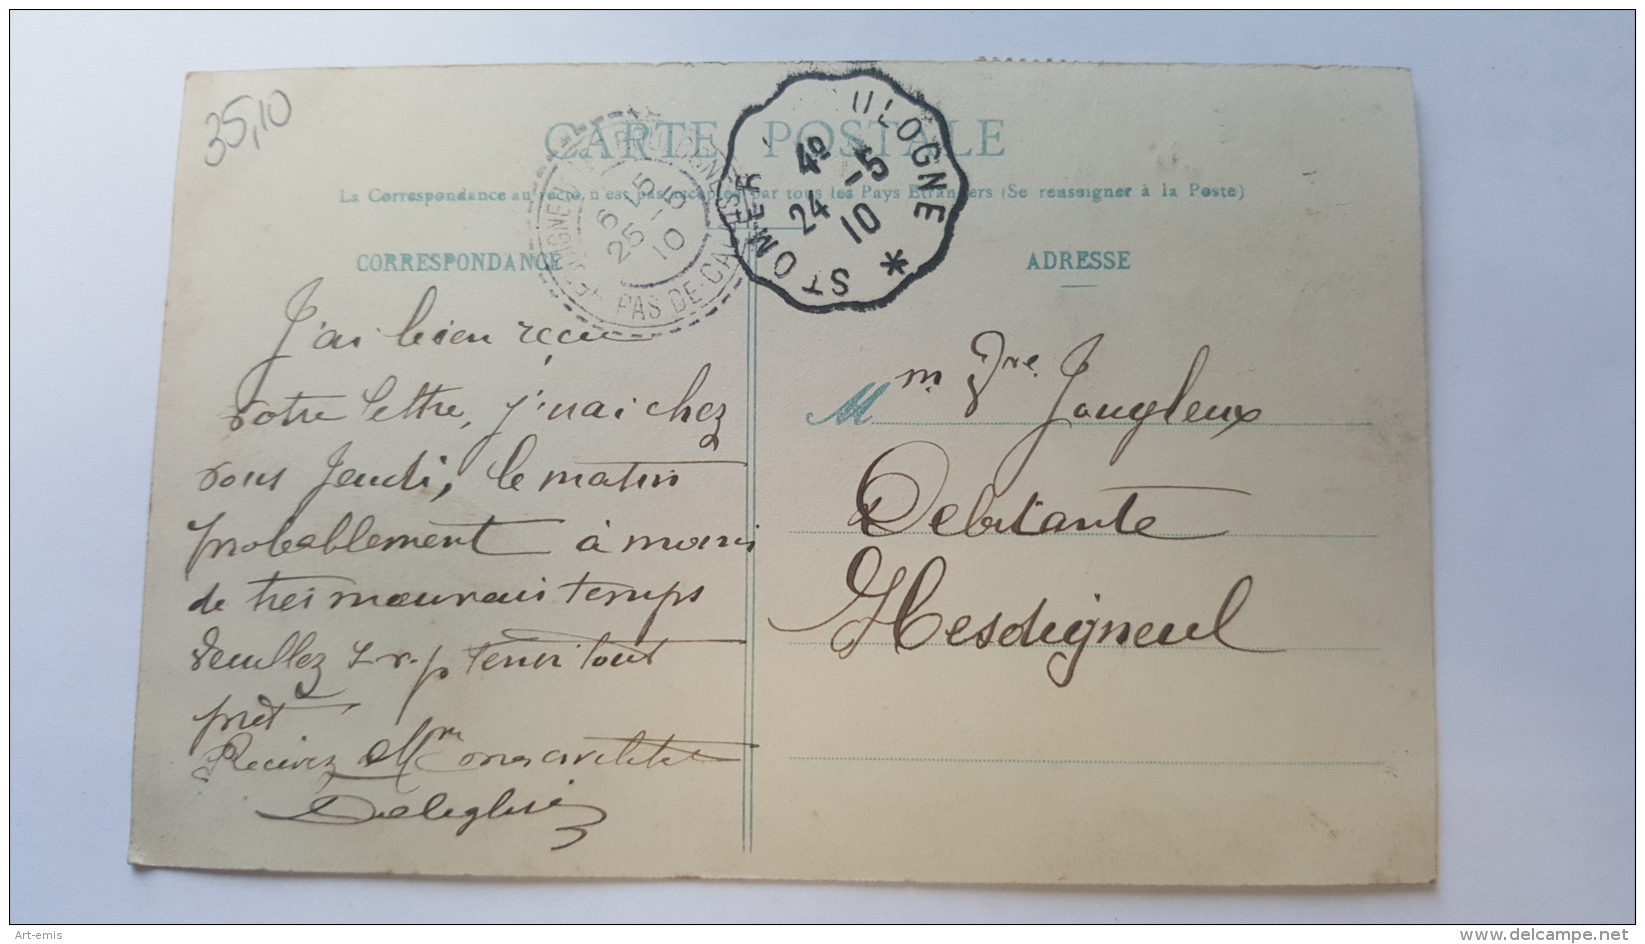 35,10
CARTE POSTALE
La Correspondance au recto n'est pas acceptée par tous les Pays Etrangers (Se renseigner à la Poste)
ST OMER
ULOGNE *
4º
24 -5
10
6 15
25 -5
10
PAS-DE-CALAIS
CORRESPONDANCE
ADRESSE
J'ai bien recu
votre lettre, j'irai chez
vous Jeudi, le matin
probablement à moins
de tres mauvais temps
Veuillez s.v.p tenir tout
prêt
Recevez Mme mes civilités
M me Vve Jougleux
Debitante
Hesdigneul
Art-emis
www.delcampe.net